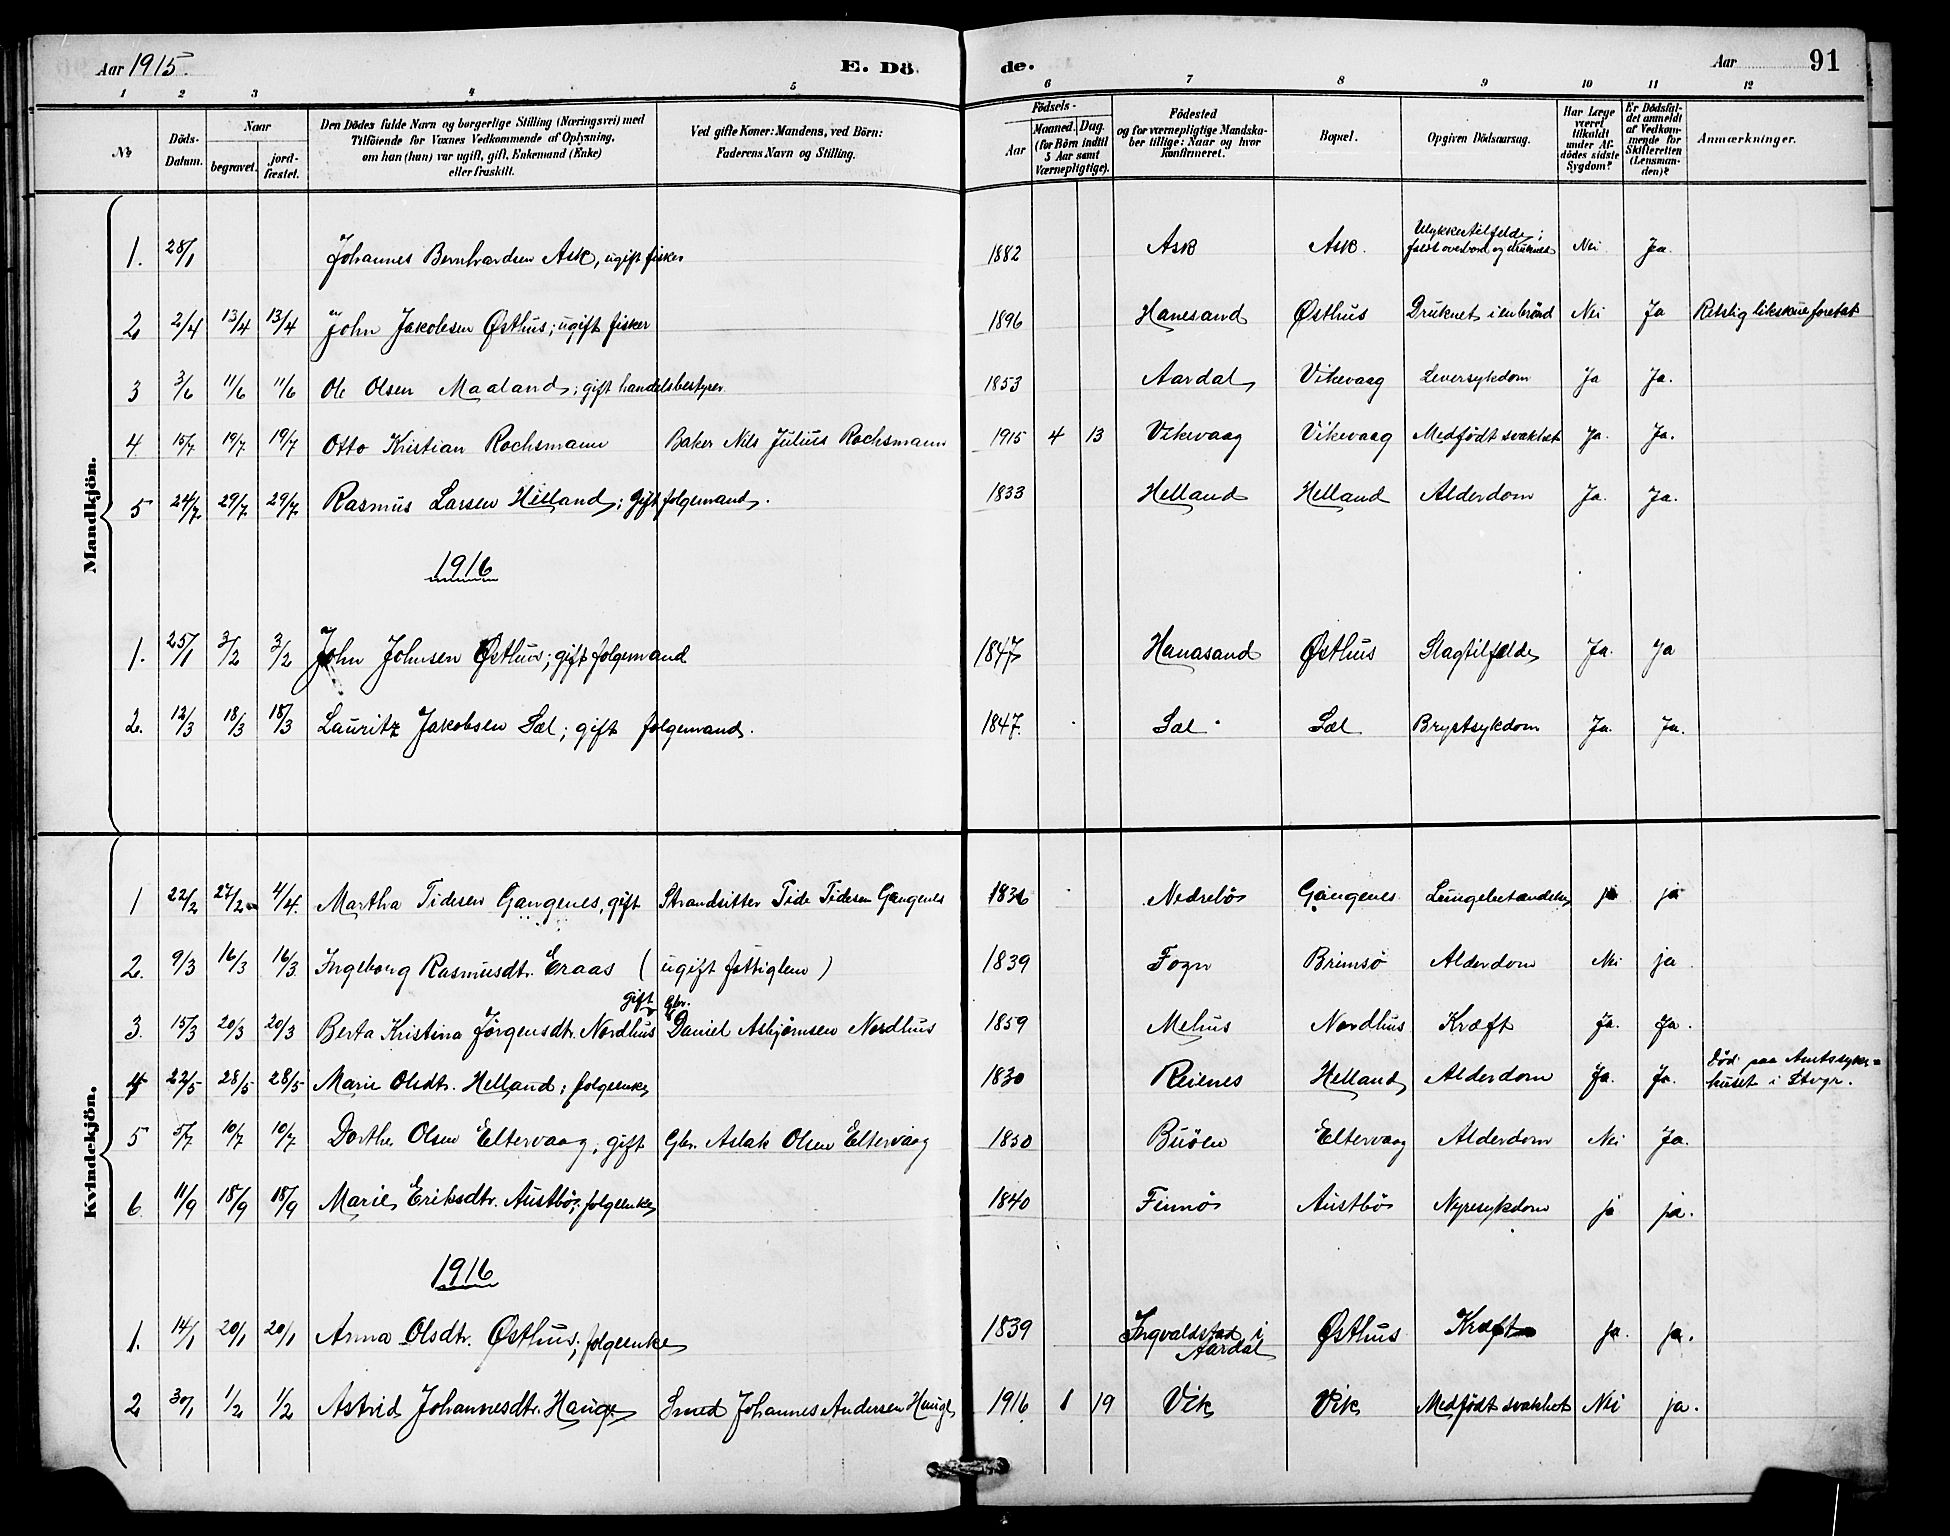 Aar 1915. E. Dö de. Aar 91
1 2 3 4 5 6 7 8 9 10 11 12
№ Döds-Datum. Naar begravet. jord-fæstet. Den Dödes fulde Navn og borgerlige Stilling (Næringsvei) med Tilföiende for Voxnes Vedkommende af Oplysning, om han (hun) var ugift, gift, Enkemand (Enke) eller fraskilt. Ved gifte Koner: Mandens, ved Börn: Faderens Navn og Stilling. Födsels- Aar Maaned. Dag. (for Börn indtil 5 Aar samt Værnepligtige). Födested og for værnepligtige Mandskaber tillige: Naar og hvor Konfirmeret. Bopæl. Opgiven Dödsaarsag. Har Læge været tilkaldt under Afdödes sidste Sygdom? Er Dödsfaldet anmeldt af Vedkommende for Skifteretten (Lensmanden)? Anmærkninger.
Mandkjön.
1. 28/1 Johannes Bernhardsen Ask, ugift fisker 1882 Ask Ask. Ulykkestilfelde; faldt overbord og druknet Nei Ja.
2 2/4 13/4 13/4 John Jakobsen Østhus; ugift fisker 1896 Hanesand Østhus Druknet i en brønd Nei Ja Retslig likskue foretat
3 3/6 11/6 11/6 Ole Olsen Maaland; gift handelsbestyrer 1853 Aardal Vikevaag Leversykdom Ja Ja.
4 15/7 19/7 19/7 Otto Kristian Rochsmann Baker Nils Julius Rochsmann 1915 4 13 Vikevaag Vikevaag Medfödt svakhet Ja. Ja.
5 24/7 29/7 29/7 Rasmus Larsen Helland; gift folgemand. 1833 Helland Helland Alderdom Ja. Ja.
1916
1. 25/1 3/2 3/2 John Johnsen Østhus; gift folgemand 1847 Hanasand Østhus Slagtilfelde Ja. Ja
2. 12/3 18/3 18/3 Lauritz Jakobsen Sæl; gift folgemand. 1847. Sæl Sæl Brystsykdom Ja. Ja.
Kvindekjön.
1 22/2 27/2 4/4. Martha Tidesen Gangenes, gift Strandsitter Tide Tidesen Gangenes 1836 Nedrebös Gangenes Lungebetændelse ja ja
2. 9/3 16/3 16/3 Ingeborg Rasmusdtr. Eraas (ugift fattiglem) 1839 Fogn Brimsö Alderdom Nei ja
3. 15/3 20/3 20/3 Berta Kristina Jörgensdtr. Nordhus gift Gbr. Daniel Asbjörnsen Nordhus 1859 Mehus Nordhus Kræft Ja. Ja.
4 22/5 28/5 28/5 Marie Olsdtr. Helland; folgeenke 1830 Reienes Helland Alderdom Ja. Ja. Död paa Amtssykehuset i Stvgr.
5 5/7 10/7 10/7 Dorthe Olsen Eltervaag, gift Gbr. Aslak Olsen Eltervaag 1830 Buöen Eltervaag Alderdom Nei Ja.
6 11/9 18/9 18/9 Marie Eriksdtr. Austbö; folgeenke 1840 Finnö Austbö Nyresykdom ja ja.
1916
1. 14/1 20/1 20/1 Anna Olsdtr. Østhus; folgeenke 1839 Ingvaldstad i Aardal Østhus Kræft ja. ja.
2 30/1 1/2 1/2 Astrid Johannesdtr. Hauge Smed Johannes Andersen Hauge 1916 1 19 Vik Vik Medfödt svakhet Nei ja.